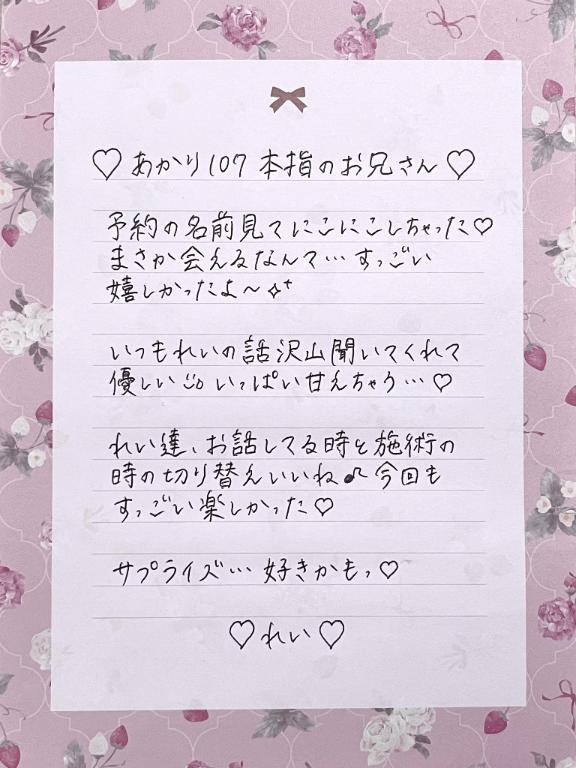 ♡ あかり107 本指のお兄さん ♡
予約の名前見てにこにこしちゃった♡
まさか会えるなんて…すっごい
嬉しかったよ〜✧⁺
いつもれいの話沢山聞いてくれて
優しい☺いっぱい甘えちゃう…♡
れい達、お話してる時と施術の
時の切り替えいいね♪今回も
すっごい楽しかった♡
サプライズ…好きかもっ♡
♡れい♡